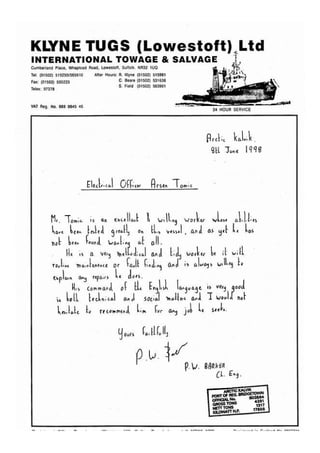 KLYNE TUGS (Lowestoft) Ltd
INTERNATIONAL TOWAGE & SALVAGE
Cumberland Place, Whapload Road, Lowestoft, Suffolk, NR32 1UQ
Tel: (01502)
Fax: (01502)
Telex: 97378
After Hours: R. Klyne (01502)
C. Beare (01502)
S. Field (01502)
VAT Reg. No.
24 HOUR SERVICE
Arctic Kalvik.
9th June 1998
Electrical Officer Arsen Tomic
Mr. Tomic is an excellent & willing worker whose abilities
have been tested greatly on this vessel, and as yet he has
not been found wanting at all.
He is a very methodical and tidy worker be it with
routine maintenance or fault finding and is always willing to
explain any repairs he does.
His command of the English language is very good
in both technical and social matters and I would not
hesitate to recommend him for any job he seeks.
Yours faithfully
P.W.
P.W. BARKER
Ch. Eng.
ARCTIC KALVIK
PORT OF REG. BRIDGETOWN
OFFICIAL No.
GROSS TONS 4391
NETT TONS 1317
KILOWATT H.P.